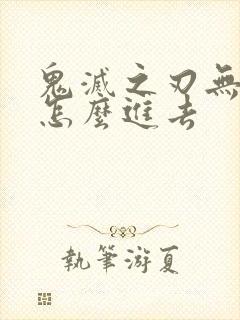 鬼滅之刃無
怎麼進去
執筆游夏